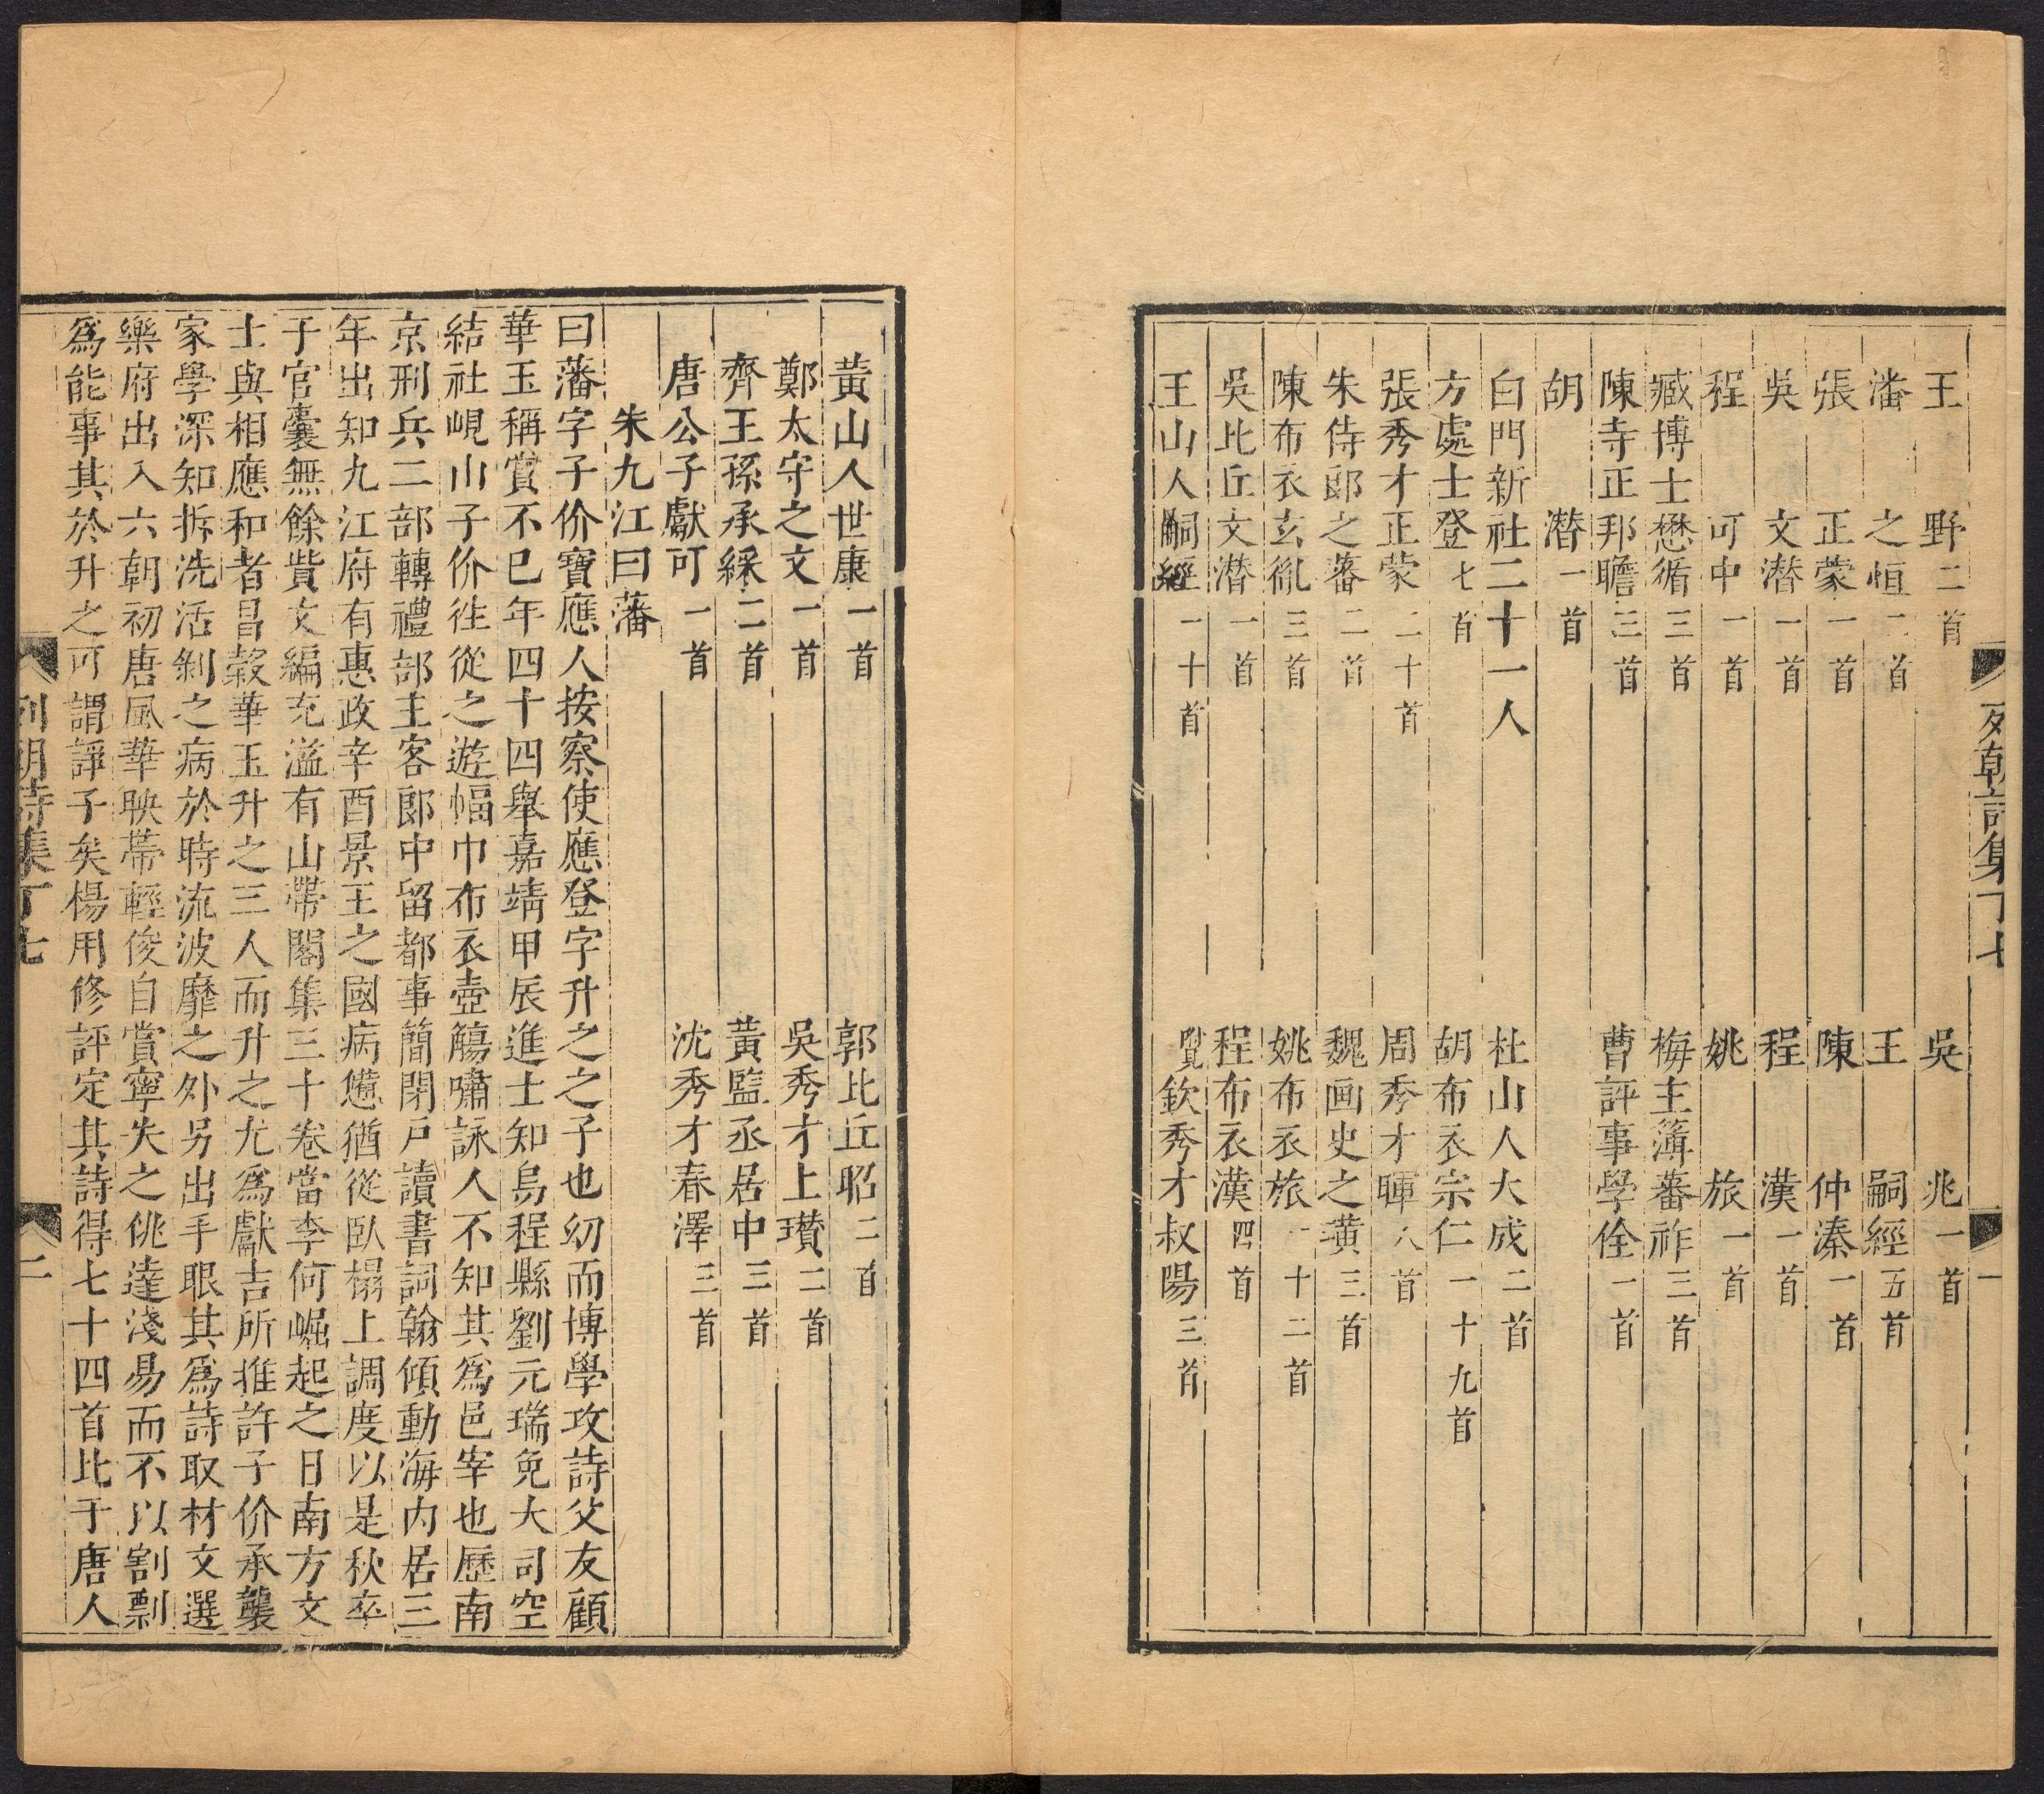 列朝詩集丁七 一
王野二首 吳兆一首
潘之恒二首 王嗣經五首
張正蒙一首 陳仲溱一首
吳文潛一首 程漢一首
程可中一首 姚旅一首
臧博士懋循三首 梅主簿蕃祚三首
陳寺正邦瞻三首 曹評事學佺一首
胡潛一首
白門新社二十一人 杜山人大成二首
方處士登七首 胡布衣宗仁一十九首
張秀才正蒙二十首 周秀才暉八首
朱侍郎之蕃二首 魏画史之璜三首
陳布衣玄胤三首 姚布衣旅一十二首
吳比丘文潛一首 程布衣漢四首
王山人嗣經一十首 覽欽秀才叔陽三首
黃山人世康一首 郭比丘昭二首
鄭太守之文一首 吳秀才上瓚二首
齊王孫承綵二首 黃監丞居中三首
唐公子獻可一首 沈秀才春澤三首
朱九江曰藩
曰藩字子价寶應人按察使應登字升之之子也幼而博學攻詩父友顧
華玉稱賞不已年四十四舉嘉靖甲辰進士知烏程縣劉元瑞免大司空
結社峴山子价往從之遊幅巾布衣壺觴嘯詠人不知其為邑宰也歷南
京刑兵二部轉禮部主客郎中留都事簡閉戸讀書詞翰傾動海内居三
年出知九江府有惠政辛酉景王之國病憊猶從臥榻上調度以是秋卒
于官囊無餘貲文編充溢有山帶閣集三十卷當李何崛起之日南方文
士與相應和者昌穀華玉升之三人而升之尤為獻吉所推許子价承襲
家學深知拆洗活剝之病於時流波靡之外另出手眼其為詩取材文選
樂府出入六朝初唐風華映帶輕俊自賞寧失之佻達淺易而不以割剽
為能事其於升之可謂諍子矣楊用修評定其詩得七十四首比于唐人
列朝詩集丁七 二